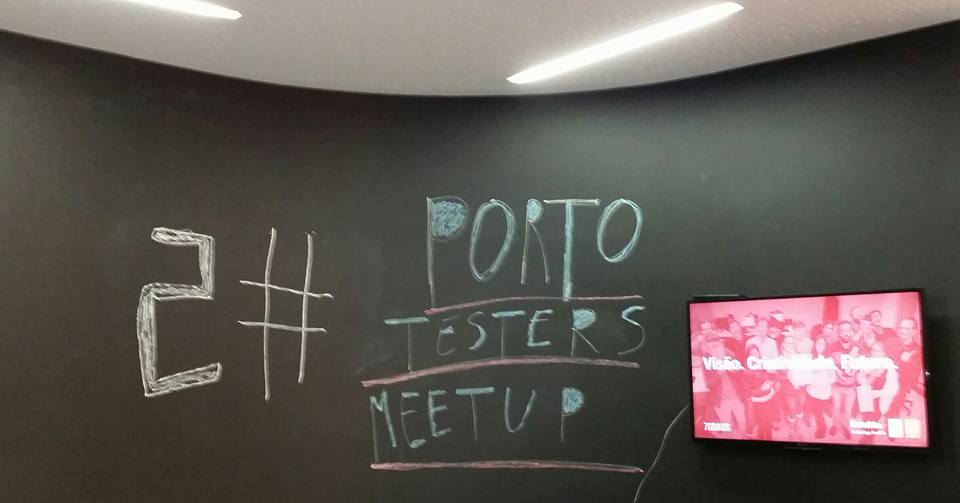 2# PORTO
TESTERS
MEETUP
Visão. Criatividade. Futuro.
7GRAUS